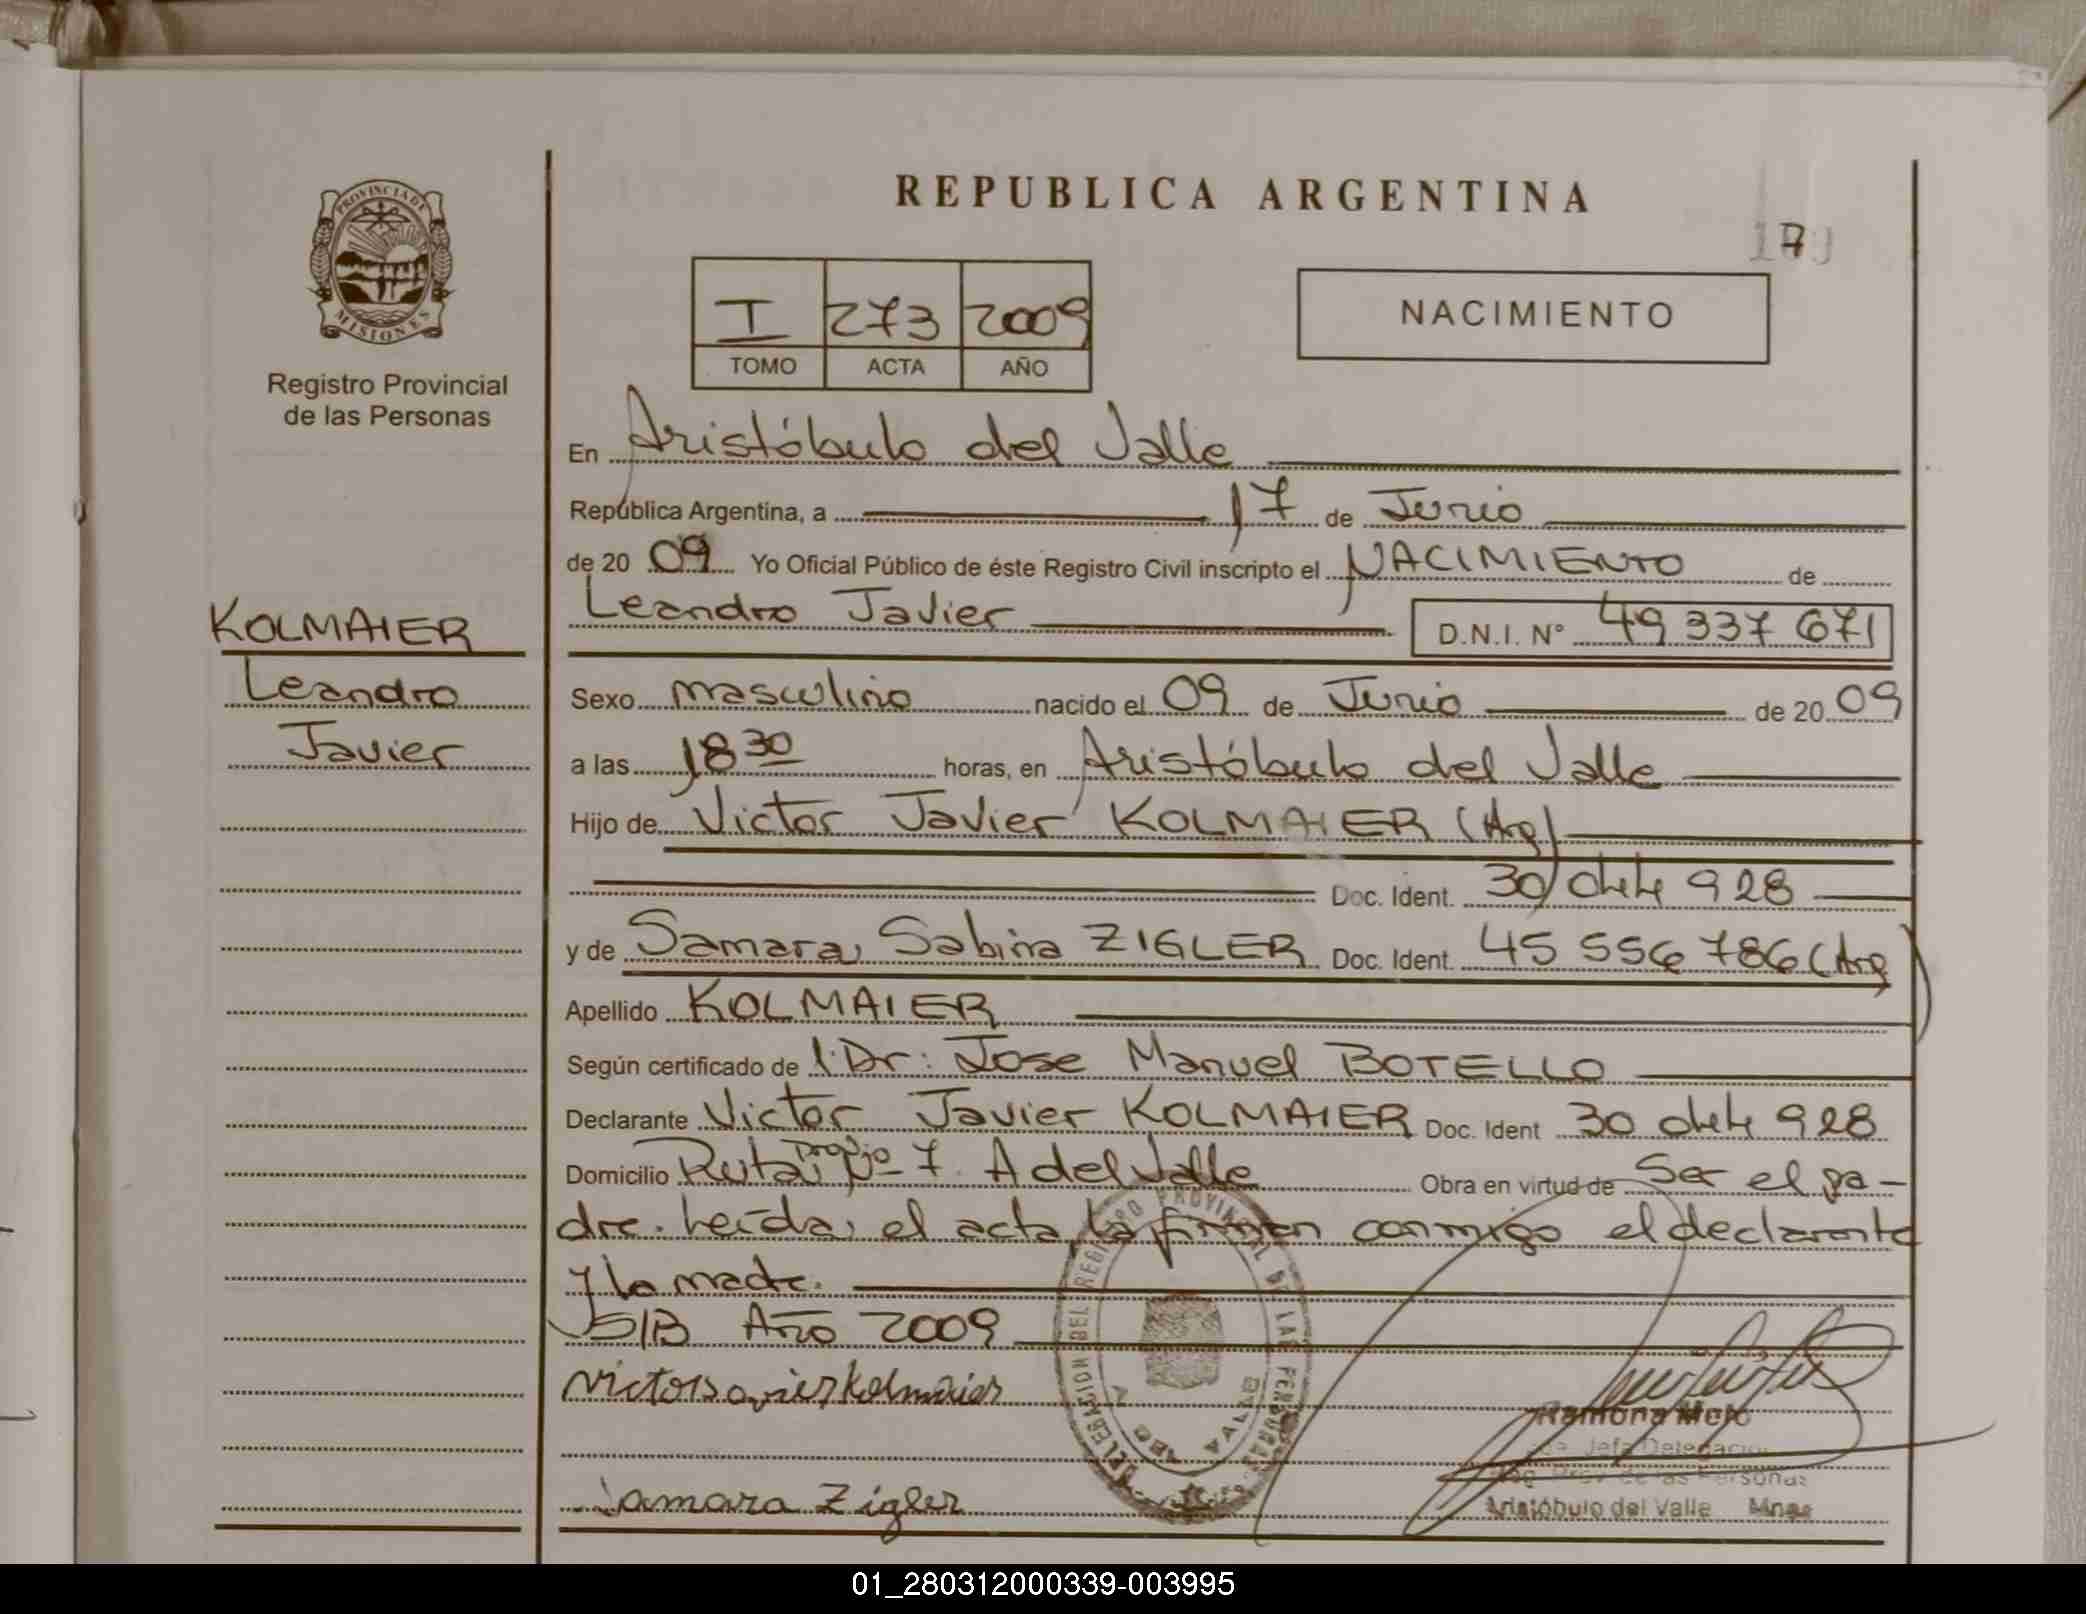 REPUBLICA ARGENTINA
PROVINCIA DE
MISIONES
Registro Provincial
de las Personas
7
I 273 2009
TOMO ACTA AÑO
NACIMIENTO
En Aristóbulo del Valle
República Argentina, a 17 de Junio
de 20 09 Yo Oficial Público de éste Registro Civil inscripto el NACIMIENTO de
Leandro Javier D.N.I. Nº 49 337 671
KOLMAIER
Leandro
Javier
Sexo masculino nacido el 09 de Junio de 20 09
a las 18 30 horas, en Aristóbulo del Valle
Hijo de Victor Javier KOLMAIER (Arg)
Doc. Ident. 30 928
y de Samara Sabina ZIGLER Doc. Ident. 45 556 786 (Arg)
Apellido KOLMAIER
Según certificado de l Dr: Jose Manuel BOTELLO
Declarante Victor Javier KOLMAIER Doc. Ident 30 928
Domicilio Ruta Nº 7 A del Valle Obra en virtud de Ser el pa-
dre. Leída el acta la firman conmigo el declarante
y la madre.
S/B Año 2009
Victor Javier Kolmaier
Samara Zigler
DELEGACION DEL REGISTRO PROVINCIAL DE LAS PERSONAS
Ramona Melo
Jefa Delegación
Reg. Prov. de las Personas
Aristóbulo del Valle Mnes
01_280312000339-003995